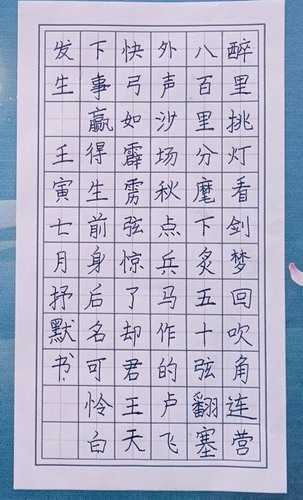 醉里挑灯看剑梦回吹角连营
八百里分麾下炙五十弦翻塞
外声沙场秋点兵马作的卢飞
快弓如霹雳弦惊了却君王天
下事赢得生前身后名可怜白
发生 壬寅士月抒默书